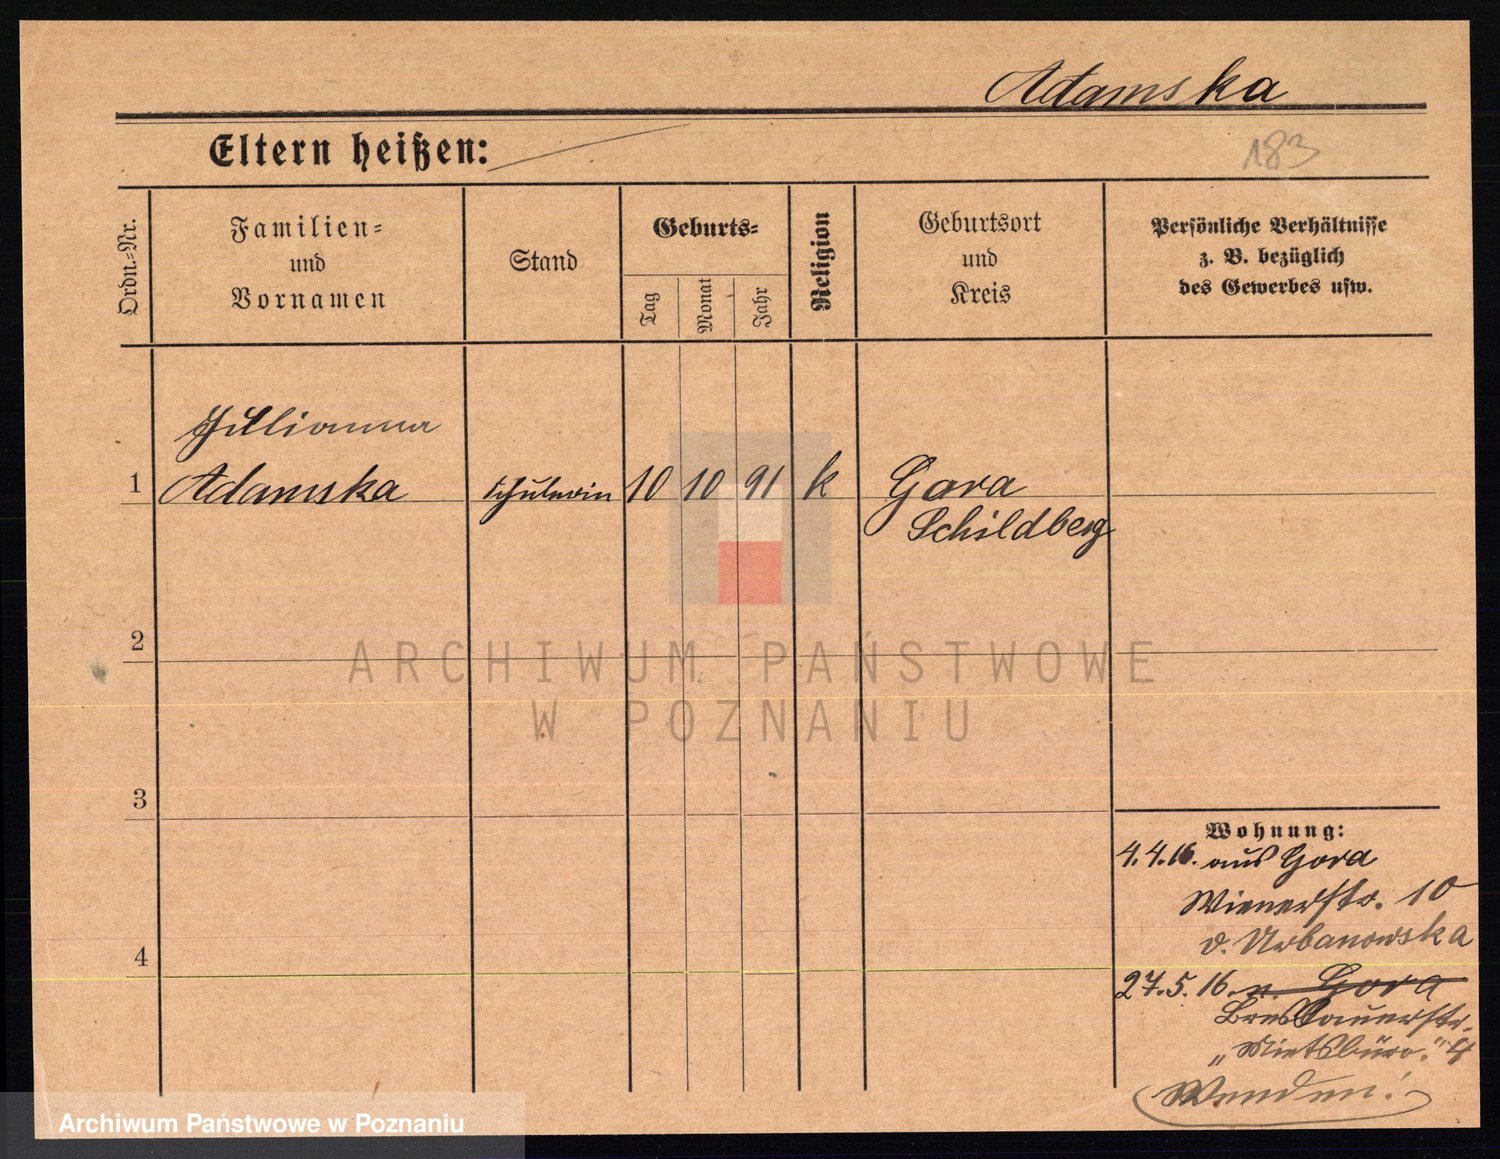 Adamska
Eltern heißen:
183
Ordn.-Nr.
Familien-
und
Vornamen
Stand
Geburts-
Tag
Monat
Jahr
Religion
Geburtsort
und
Kreis
Persönliche Verhältnisse
z. B. bezüglich
des Gewerbes usw.
Julianna
1 Adamska 10 10 91 k Gora
Schildberg
2
3
4
ARCHIWUM PAŃSTWOWE
W POZNANIU
Wohnung:
4.4.16. aus Gora
Wienerstr. 10
b. Urbanowska
27.5.16. n. Gora
Breslauerstr.
„Mietsbüro."
Wenden!
Archiwum Państwowe w Poznaniu